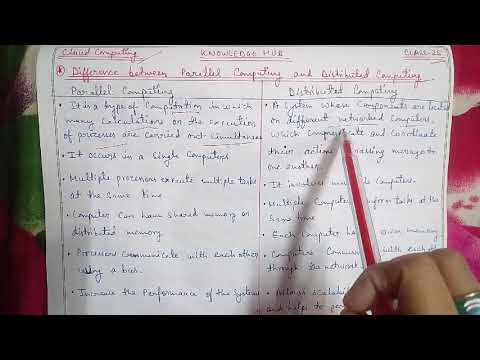 Cloud Computing
KNOWLEDGE HUB
CLASS-25
Difference between Parallel Computing and Distributed Computing
Parallel Computing
• It is a type of Computation in which
many Calculations or the execution
of processes are carried out simultaneous
• It occurs in a Single Computers
• Multiple processors execute multiple tasks
at the same time.
• Computer can have shared memory or
distributed memory.
• Processors Communicate with each other
using a bus.
• Increase the Performance of the System
Distributed Computing
• A System whose Components are located
on different networked Computers,
which Communicate and Coordinate
their action passing message to
one another.
• It involves Computers.
• Multiple Computers perform tasks at the
same time
• Each Computer has memory
• Computers with each
through the network
• Allows scalab
and helps to